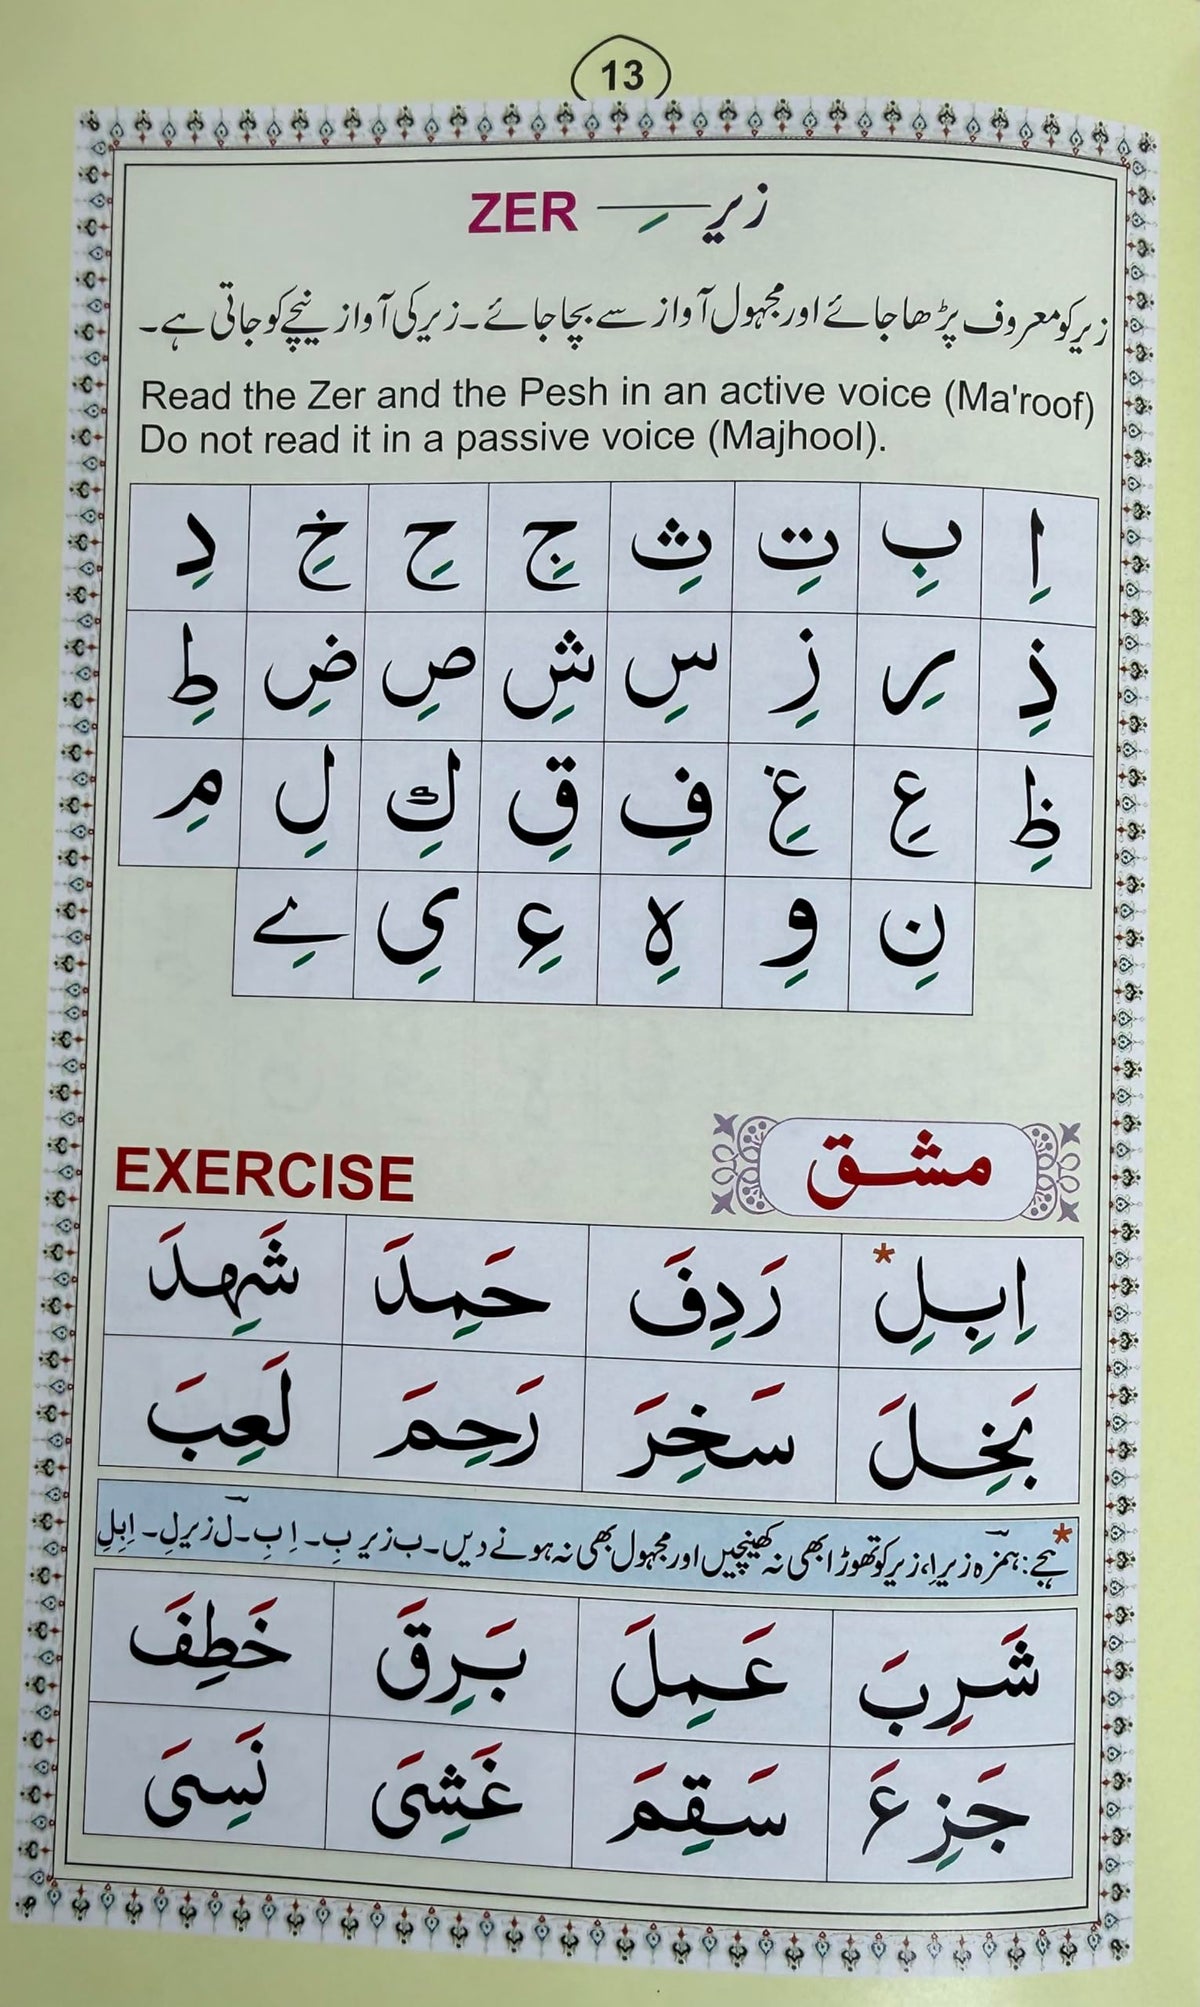 13
ZER زیر ـِ
زیر کو معروف پڑھا جائے اور مجہول آواز سے بچا جائے۔ زیر کی آواز نیچے کو جاتی ہے۔
Read the Zer and the Pesh in an active voice (Ma'roof)
Do not read it in a passive voice (Majhool).
اِ بِ تِ ثِ جِ حِ خِ دِ
ذِ رِ زِ سِ شِ صِ ضِ طِ
ظِ عِ غِ فِ قِ كِ لِ مِ
نِ وِ هِ ءِ یِ ےِ
EXERCISE مشق
اِبِلِ* رَدِفَ حَمِدَ شَهِدَ
بَخِلَ سَخِرَ رَحِمَ لَعِبَ
* ہجے: ہمزہ زیر اِ، زیر کو تھوڑا بھی نہ کھینچیں اور مجہول بھی نہ ہونے دیں۔ ب زیر بِ۔ اِبِ۔ لٓ زیر لِ۔ اِبِلِ
شَرِبَ عَمِلَ بَرِقَ خَطِفَ
جَزِعَ سَقِمَ غَشِیَ نَسِیَ